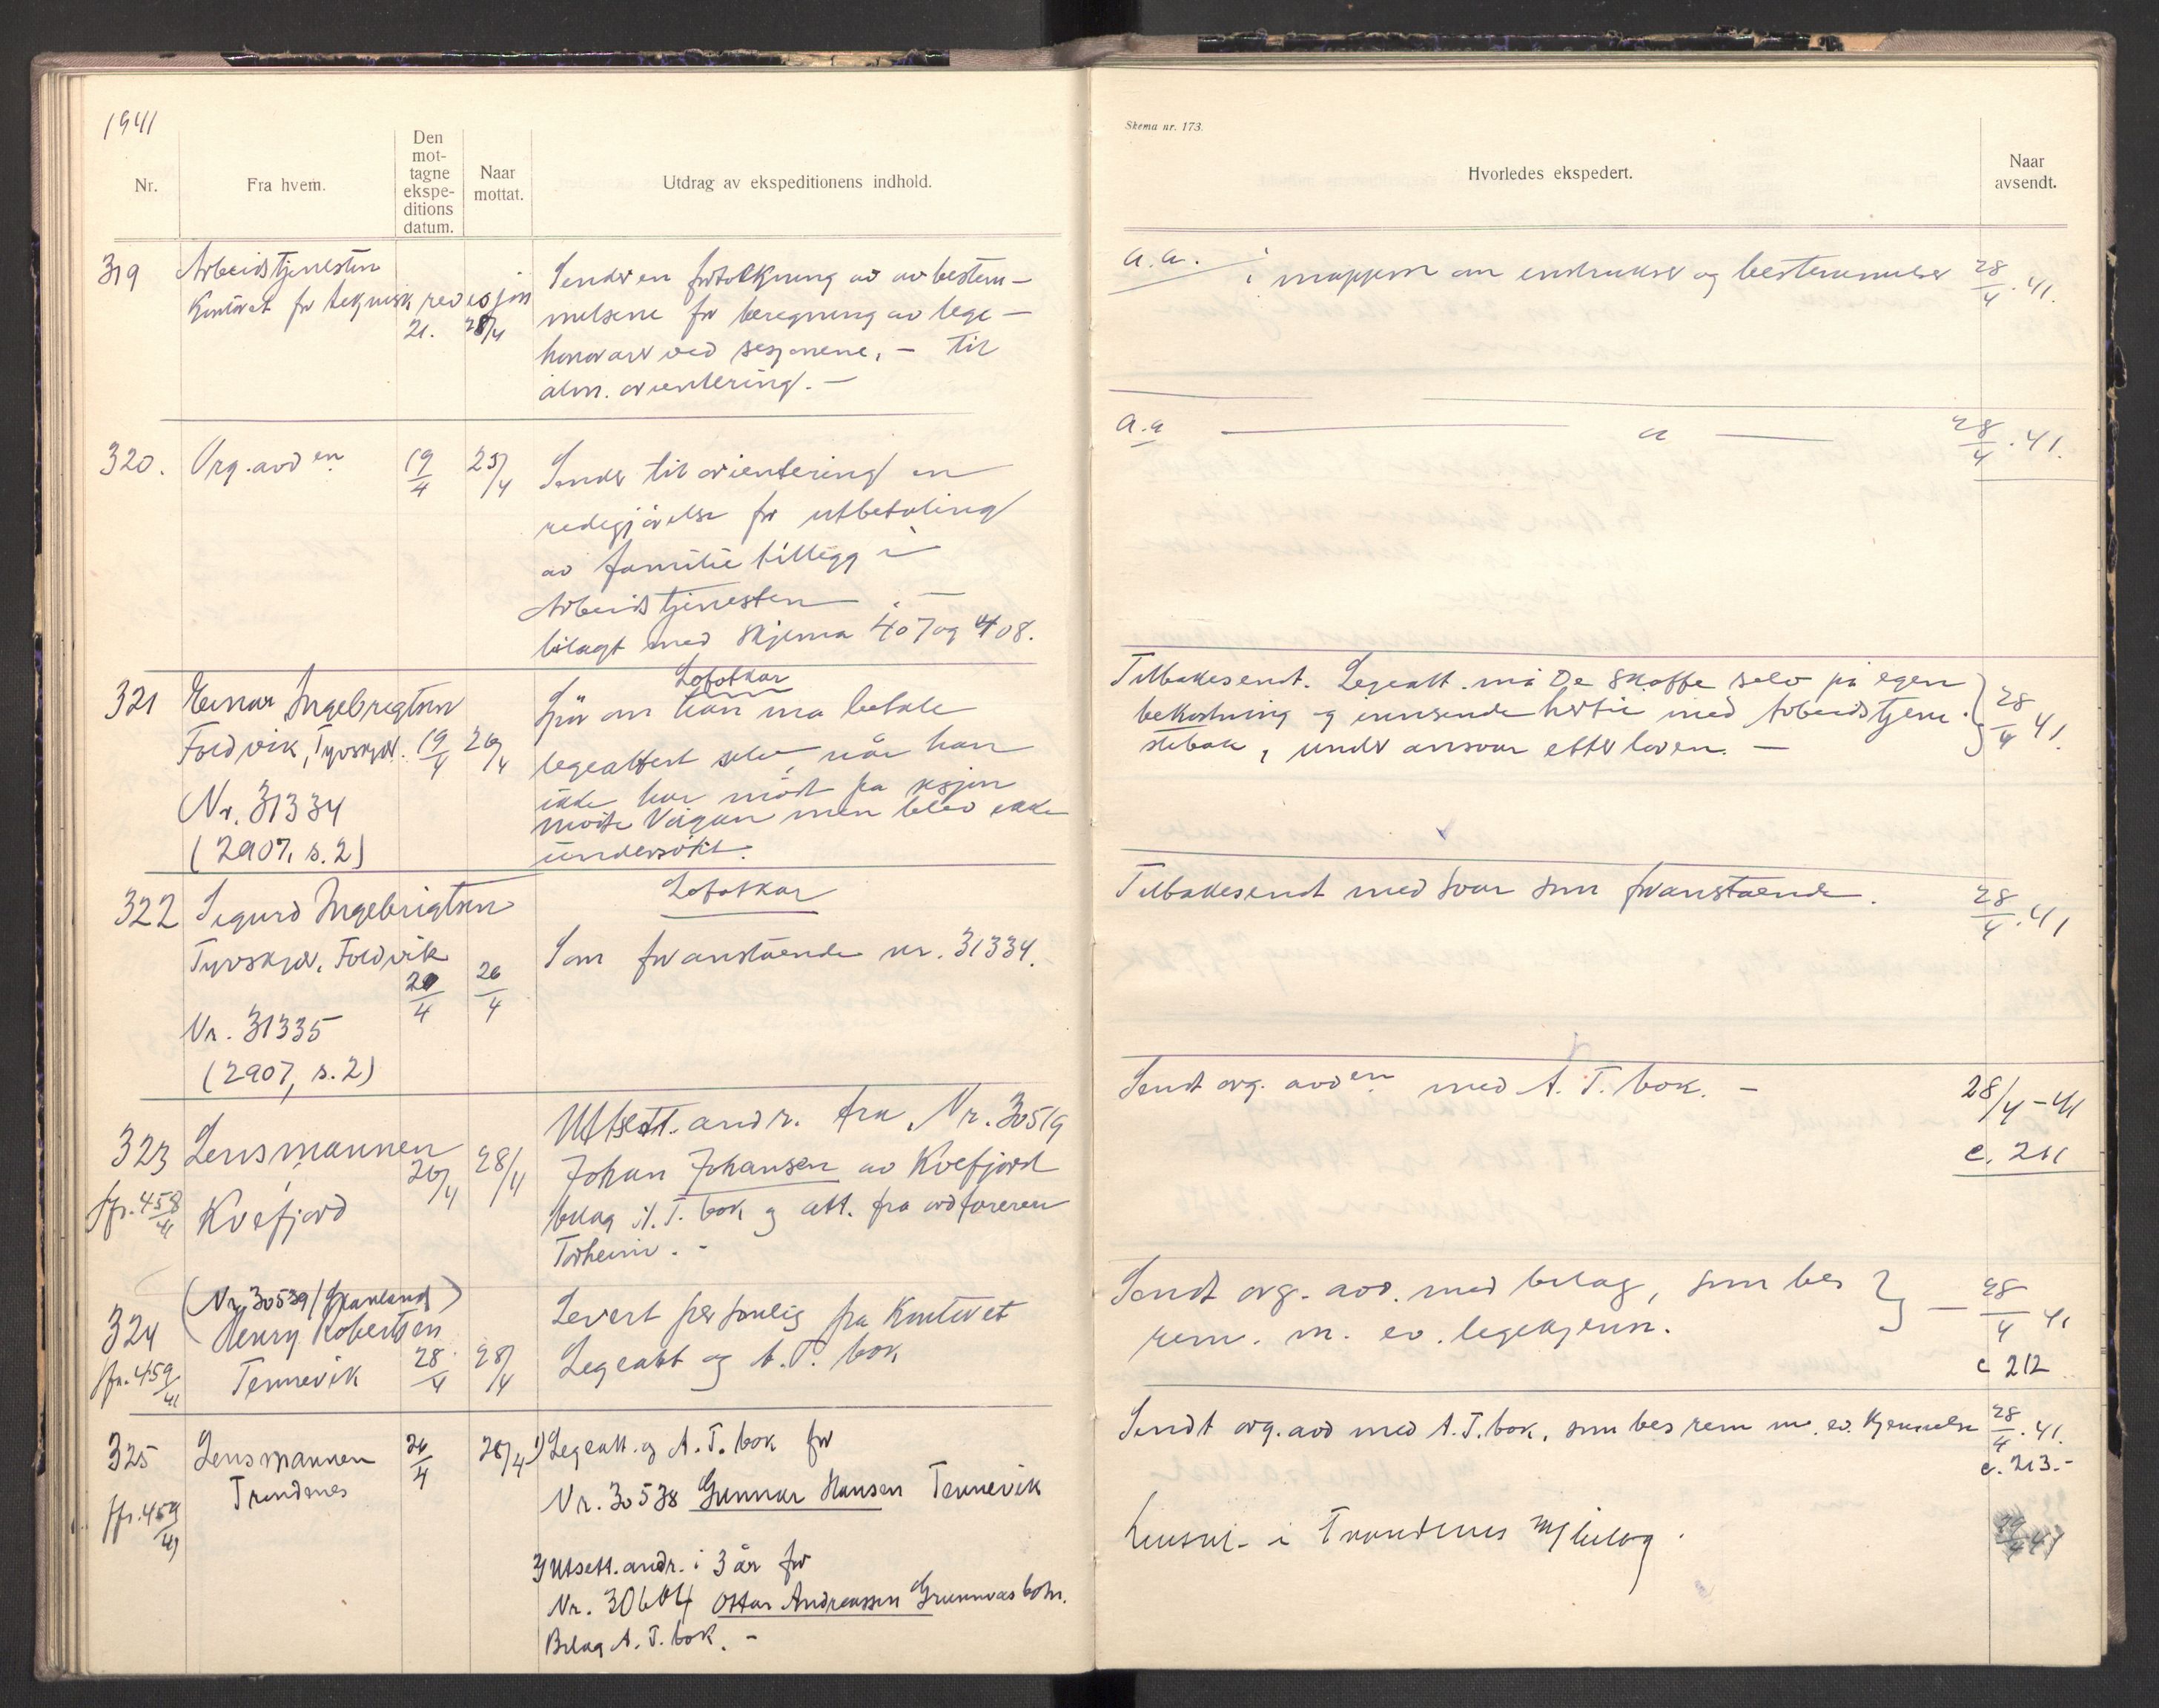 1941
Nr.
Fra hvem.
Den
mot-
tagne
ekspe-
ditions
datum.
Naar
mottat.
Utdrag av ekspeditionens indhold.
319 Arbeidstjenesten
Kontoret for teknisk revisjon
21. 28/4
Sender en fortolkning av av bestem-
melsene for beregning av lege-
honorarer ved sesjonene, - til
alm. orientering. -
320. Org. avd en 19/4 23/4
Sender til orientering en
redegjørelse for utbetaling
av familietillegg i
Arbeidstjenesten. -
bilagt med skjema 407 og 408.
321 Einar Ingebrigtsen
Foldvik, Tyvskjær. 19/4 26/4
Nr. 31334
(2907, s. 2)
Lofotkar
Spør om han må betale
legeattest selv, når han
ikke har møtt på sesjon
møtte Vågan men blev ikke
undersøkt.
322 Sigurd Ingebrigtsen
Tyvskjær, Foldvik
20/4 26/4
Nr. 31335
(2907, s. 2)
Lofotkar
Som foranstående nr. 31334.
323 Lensmannen
20/4 28/4
Kvefjord
jfr. 458/41
Utsett. andr. fra Nr. 30519
Johan Johansen av Kvefjord
bilag A.T. bok og att. fra ordføreren
Torheim. -
324 (Nr. 30539/Granland)
Henry Robertsen
Tennevik 28/4 28/4
jfr. 459/41
Levert personlig fra Kontoret
Legeatt og A.T. bok
325 Lensmannen
Trondenes
26/4 28/4
jfr. 459/41
1) Legeatt. og A.T. bok for
Nr. 30538 Gunnar Hansen Tennevik
2) Utsett. andr. i 3 år for
Nr. 30604 Ottar Andreassen Grunnvasbotn.
Bilag A.T. bok. -
Skema nr. 173.
Hvorledes ekspedert.
Naar
avsendt.
a.a. i mappen om instrukser og bestemmelser 28/4.41.
a.a — a — 28/4.41.
Tilbakesendt. Legeatt. må De skaffe selv på egen
bekostning og innsende hertil med Arbeidstjene-
stebok, under ansvar etter loven. - 28/4 41.
Tilbakesendt med svar som foranstående. 28/4.41
Sendt org. avd en med A.T. bok. - 28/4-41
c. 211
Sendt org. avd. med bilag, som bes
rem. m. ev. legekjenn. - 28/4 41
c 212
Sendt org. avd med A.T. bok, som bes rem m. ev. kjennelse 28/4.41.
c. 213.-
Lensm. i Trondenes m/bilag.